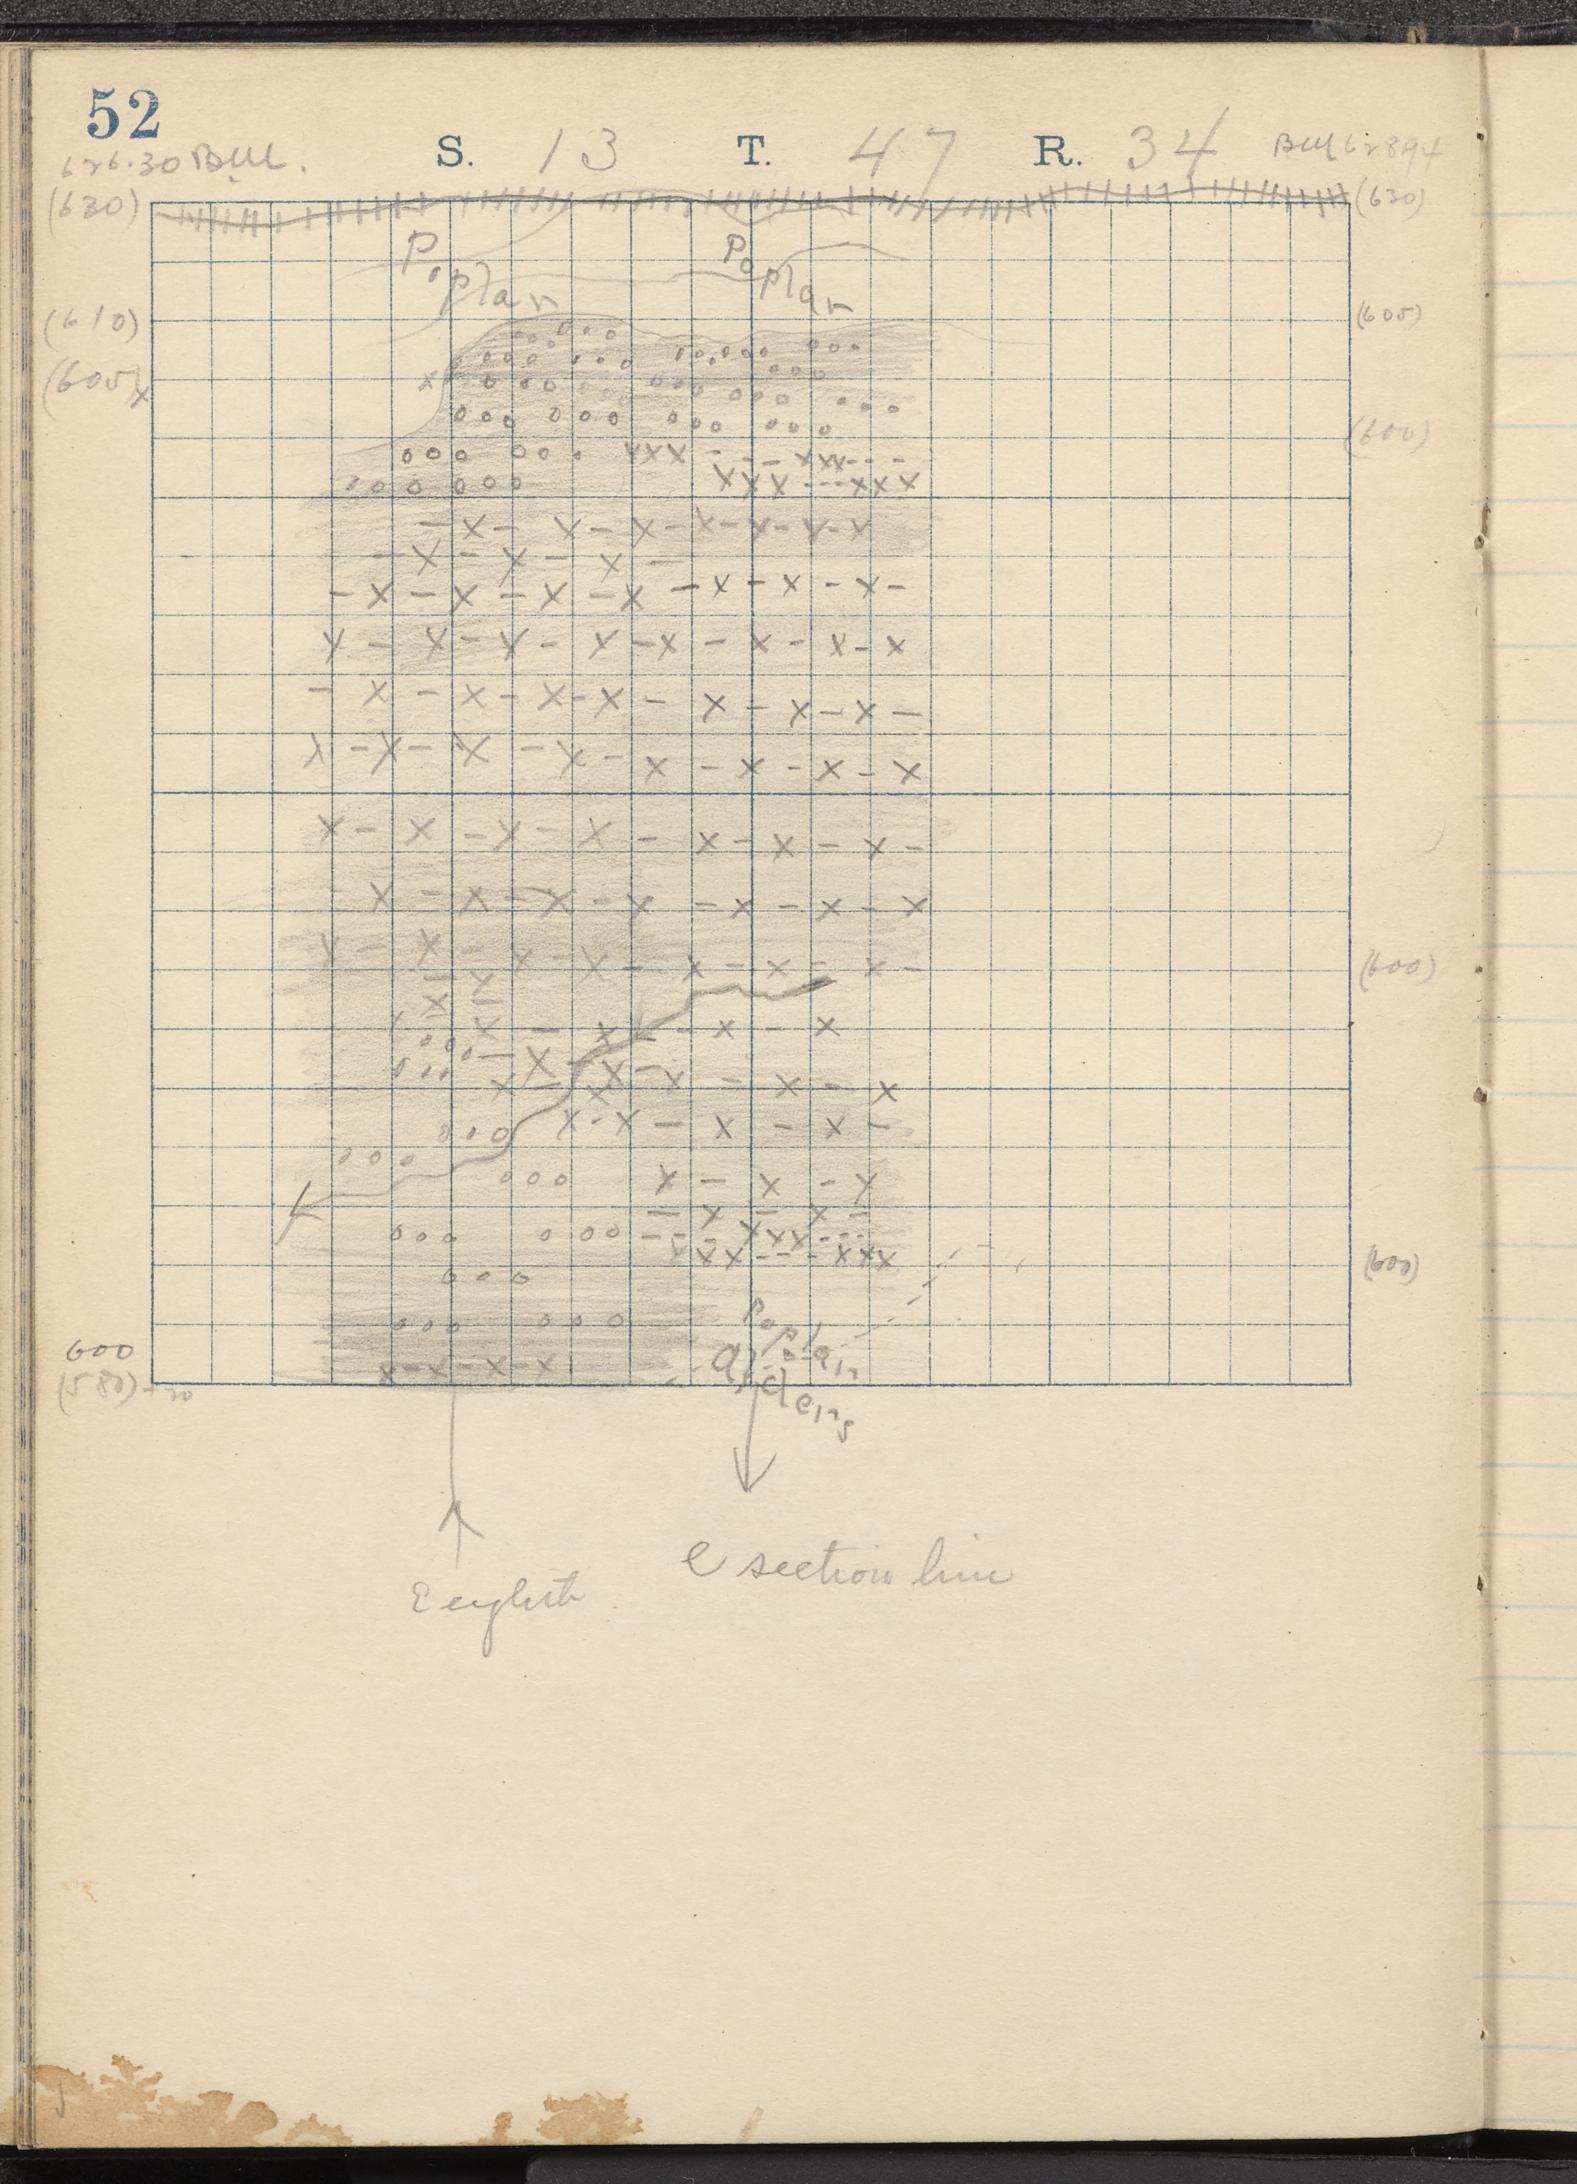 52
S. 13 T. 47 R. 34
626.30 BM.
BM 62894
(630)
(630)
Poplar
Poplar
(610)
(605)
(605)x
(600)
(600)
(600)
Poplar
alders
600
(580)+20
E eighth
E section line